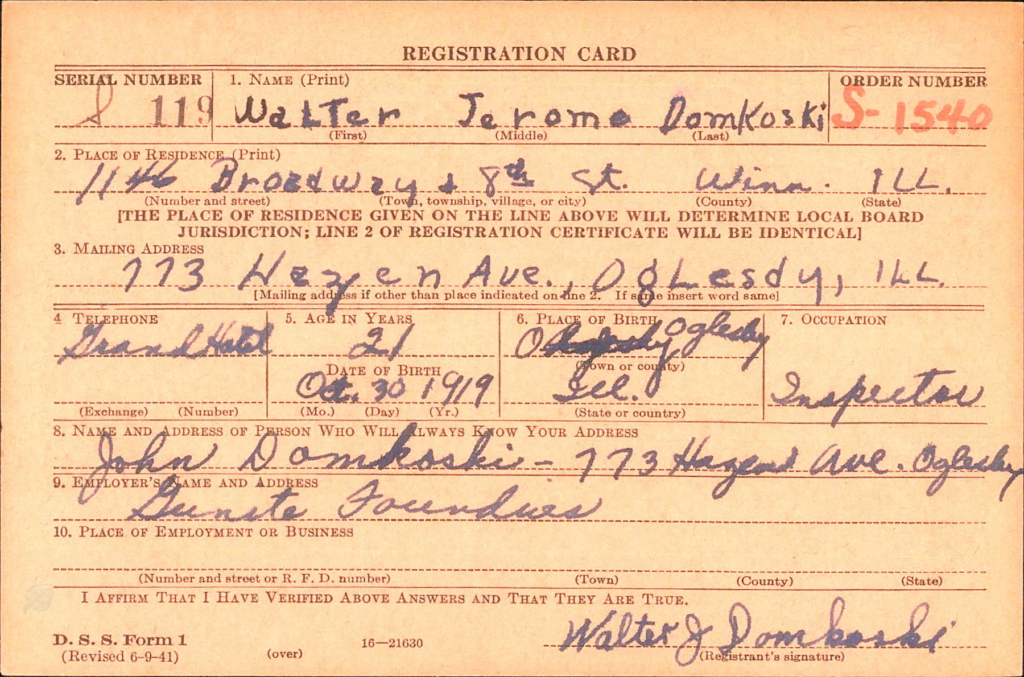 REGISTRATION CARD
SERIAL NUMBER 1. NAME (Print) ORDER NUMBER
S 119 Walter Jerome Domkoski S-1540
(First) (Middle) (Last)
2. PLACE OF RESIDENCE (Print)
1146 Broadway & 8th St. Winn. ILL.
(Number and street) (Town, township, village, or city) (County) (State)
[THE PLACE OF RESIDENCE GIVEN ON THE LINE ABOVE WILL DETERMINE LOCAL BOARD
JURISDICTION; LINE 2 OF REGISTRATION CERTIFICATE WILL BE IDENTICAL]
3. MAILING ADDRESS
773 Hazen Ave., OgLesdy, ILL.
[Mailing address if other than place indicated on line 2. If same insert word same]
4 TELEPHONE 5. AGE IN YEARS 6. PLACE OF BIRTH 7. OCCUPATION
Grand Hotel 21 Oglesby
DATE OF BIRTH (Town or county)
Oct. 30 1919 Ill. Inspector
(Exchange) (Number) (Mo.) (Day) (Yr.) (State or country)
8. NAME AND ADDRESS OF PERSON WHO WILL ALWAYS KNOW YOUR ADDRESS
John Domkoski - 773 Hazen Ave. Oglesby
9. EMPLOYER'S NAME AND ADDRESS
Gunite Foundries
10. PLACE OF EMPLOYMENT OR BUSINESS
(Number and street or R. F. D. number) (Town) (County) (State)
I AFFIRM THAT I HAVE VERIFIED ABOVE ANSWERS AND THAT THEY ARE TRUE.
D. S. S. Form 1
(Revised 6-9-41) (over) 16—21630
Walter J Domkoski
(Registrant's signature)